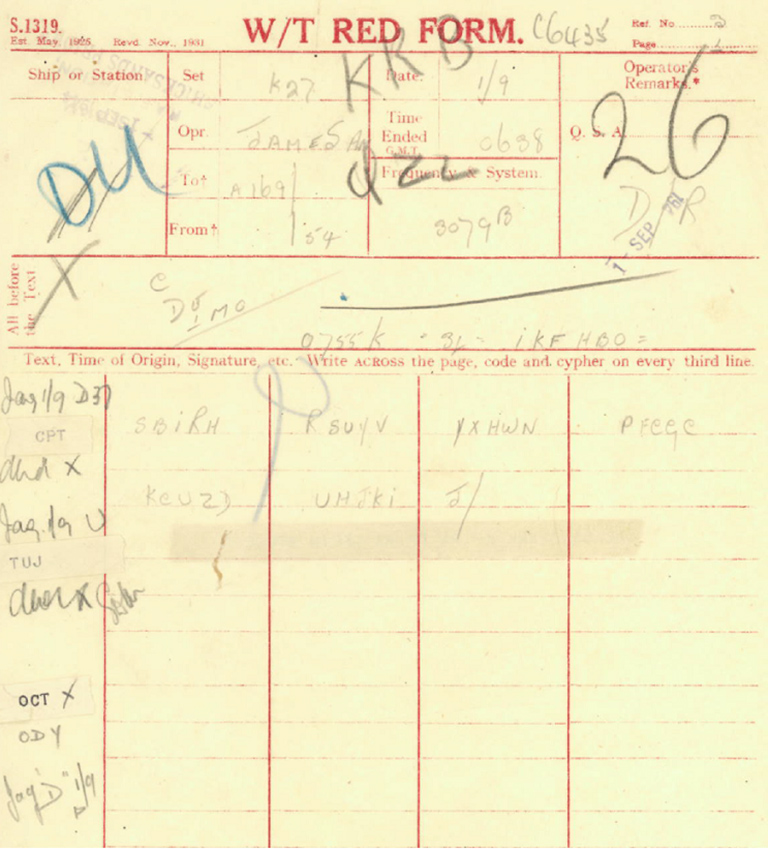 S.1319.
Est. May, 1925. Revd. Nov., 1931
W/T RED FORM.
C6435
Ref. No. 3
Page 1
Ship or Station
Set
K27
KRB
Date.
1/9
Operator's
Remarks.*
Opr.
Time
Ended
G.M.T.
0638
Q. S. A.
26
DU
To†
A169
Frequency & System.
3079B
D/R
1-SEP
From†
54
All before
the Text
X
0755K = 31 = IKF HBO =
Text, Time of Origin, Signature, etc. Write ACROSS the page, code and cypher on every third line.
Jag 1/9 D37
CPT
SBIRH RSUYV YXHWN PFCGC
dhd X
KCUZD UHJKI J/
Jag 1/9 U
TUJ
OCT X
ODY
Jag "D" 1/9